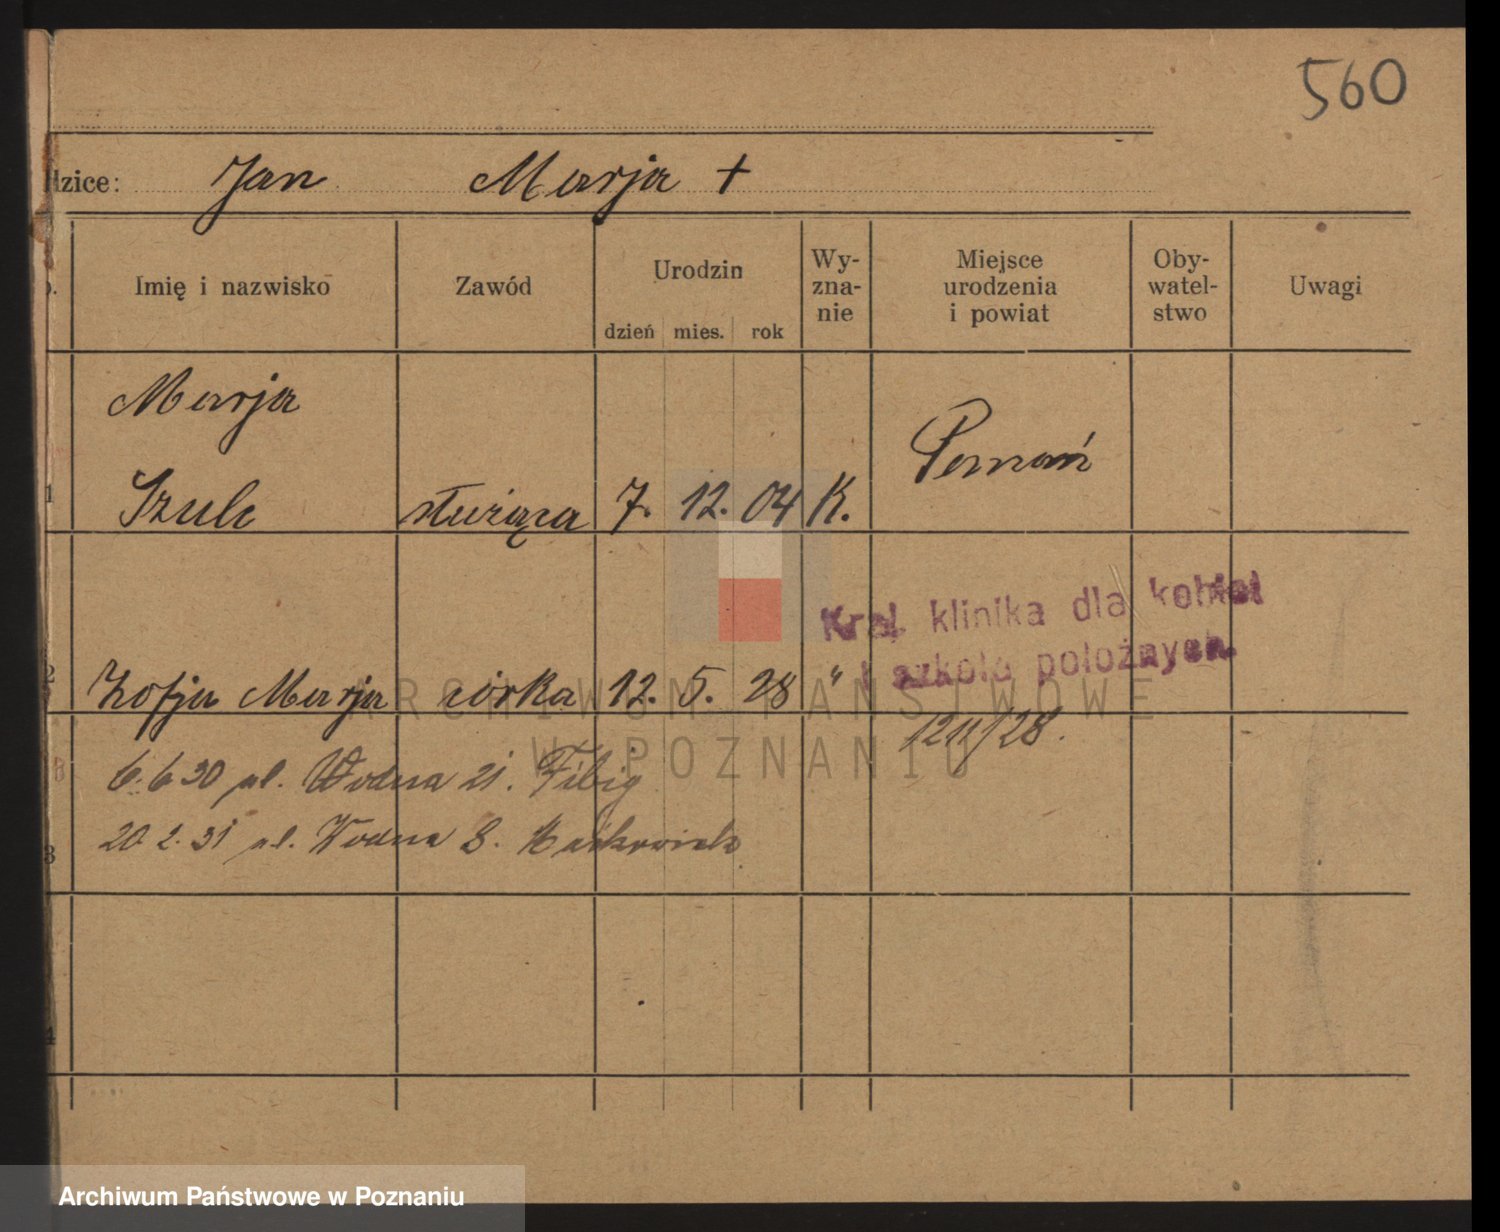 560
dzice: Jan Marja +
Imię i nazwisko Zawód Urodzin dzień mies. rok Wy-zna-nie Miejsce urodzenia i powiat Oby-watel-stwo Uwagi
Marja
Poznań
1 Szulc służąca 7. 12. 04 K.
Kraj. klinika dla kobiet
i szkoła położnych.
2 Zofja Marja córka 12. 5. 28 "
ARCHIWUM PAŃSTWOWE
W POZNANIU
1211/28.
6.6 30 ul. Wodna 21. Fibig
20 2. 31 ul. Wodna 8.
3
4
Archiwum Państwowe w Poznaniu